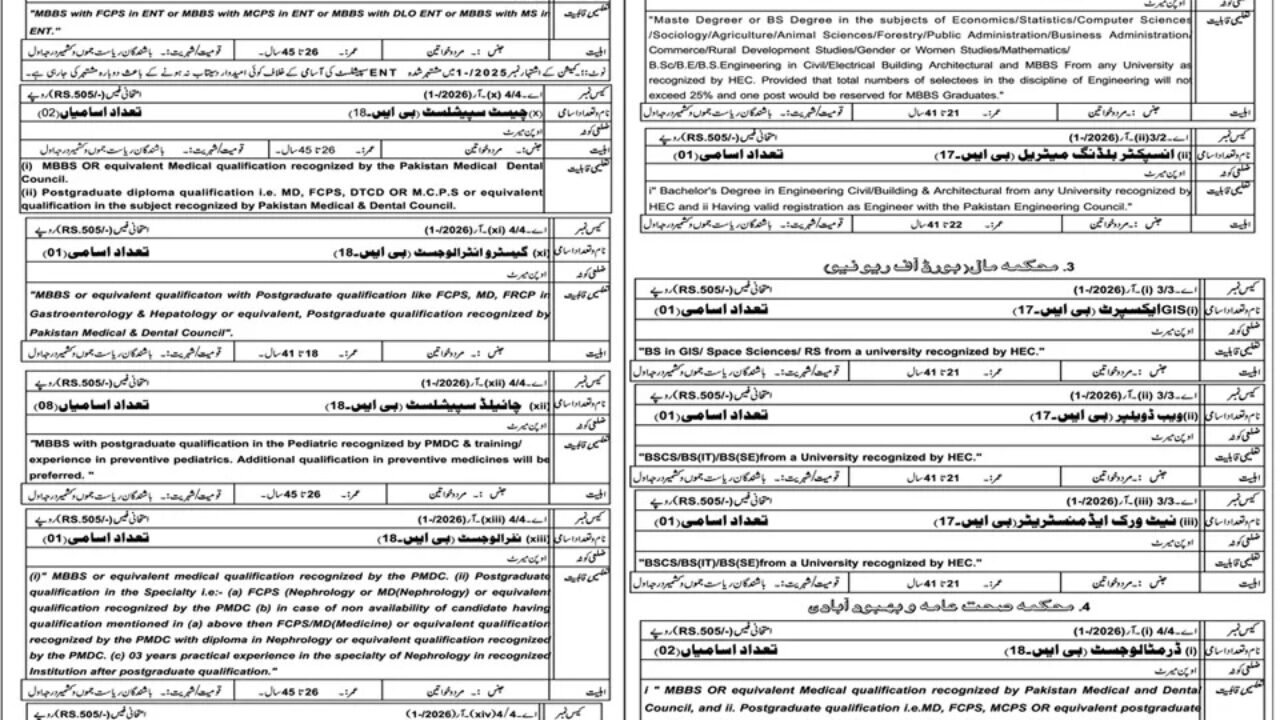 ضلعی کوٹہ اوپن میرٹ
تعلیمی قابلیت "Maste Degreer or BS Degree in the subjects of Economics/Statistics/Computer Sciences
/Sociology/Agriculture/Animal Sciences/Forestry/Public Administration/Business Administration/
Commerce/Rural Development Studies/Gender or Women Studies/Mathematics/
B.Sc/B.E/B.S.Engineering in Civil/Electrical Building Architectural and MBBS From any University as
recognized by HEC. Provided that total numbers of selectees in the discipline of Engineering will not
exceed 25% and one post would be reserved for MBBS Graduates."
اہلیت جنس :۔ مرد و خواتین عمر:۔ 21 تا 41 سال قومیت/شہریت:۔ باشندگان ریاست جموں و کشمیر درجہ اول
کیس نمبر اے۔3/2(ii)۔آر(1-/2026) امتحانی فیس (RS.505/-) روپے
نام و تعداد اسامی (ii) انسپکٹر بلڈنگ میٹریل (بی ایس۔17) تعداد اسامی (01)
ضلعی کوٹہ اوپن میرٹ
تعلیمی قابلیت i" Bachelor's Degree in Engineering Civil/Building & Architectural from any University recognized by
HEC and ii Having valid registration as Engineer with the Pakistan Engineering Council."
اہلیت جنس :۔ مرد و خواتین عمر:۔ 22 تا 41 سال قومیت/شہریت:۔ باشندگان ریاست جموں و کشمیر درجہ اول
3. محکمہ مال (بورڈ آف ریونیو)
کیس نمبر اے۔3/3 (i)۔آر(1-/2026) امتحانی فیس (RS.505/-) روپے
نام و تعداد اسامی (i)GIS ایکسپرٹ (بی ایس۔17) تعداد اسامی (01)
ضلعی کوٹہ اوپن میرٹ
تعلیمی قابلیت "BS in GIS/ Space Sciences/ RS from a university recognized by HEC."
اہلیت جنس :۔ مرد و خواتین عمر:۔ 21 تا 41 سال قومیت/شہریت:۔ باشندگان ریاست جموں و کشمیر درجہ اول
کیس نمبر اے۔3/3 (ii)۔آر(1-/2026) امتحانی فیس (RS.505/-) روپے
نام و تعداد اسامی (ii) ویب ڈویلپر (بی ایس۔17) تعداد اسامی (01)
ضلعی کوٹہ اوپن میرٹ
تعلیمی قابلیت "BSCS/BS(IT)/BS(SE)from a University recognized by HEC."
اہلیت جنس :۔ مرد و خواتین عمر:۔ 21 تا 41 سال قومیت/شہریت:۔ باشندگان ریاست جموں و کشمیر درجہ اول
کیس نمبر اے۔3/3 (iii)۔آر(1-/2026) امتحانی فیس (RS.505/-) روپے
نام و تعداد اسامی (iii) نیٹ ورک ایڈمنسٹریٹر (بی ایس۔17) تعداد اسامی (01)
ضلعی کوٹہ اوپن میرٹ
تعلیمی قابلیت "BSCS/BS(IT)/BS(SE)from a University recognized by HEC."
اہلیت جنس :۔ مرد و خواتین عمر:۔ 21 تا 41 سال قومیت/شہریت:۔ باشندگان ریاست جموں و کشمیر درجہ اول
4. محکمہ صحت عامہ و بہبود آبادی
کیس نمبر اے۔4/4 (i)۔آر(1-/2026) امتحانی فیس (RS.505/-) روپے
نام و تعداد اسامی (i) ڈرمٹالوجسٹ (بی ایس۔18) تعداد اسامیاں (02)
ضلعی کوٹہ اوپن میرٹ
تعلیمی قابلیت i " MBBS OR equivalent Medical qualification recognized by Pakistan Medical and Dental
Council, and ii. Postgraduate qualification i.e.MD, FCPS, MCPS OR equivalent postgraduate
تعلیمی قابلیت "MBBS with FCPS in ENT or MBBS with MCPS in ENT or MBBS with DLO ENT or MBBS with MS in
ENT."
اہلیت جنس :۔ مرد و خواتین عمر:۔ 26 تا 45 سال۔ قومیت/شہریت:۔ باشندگان ریاست جموں و کشمیر درجہ اول
نوٹ:۔ کمیشن کے اشتہار نمبر 1-/2025 میں مشتہر شدہ ENT سپیشلسٹ کی آسامی کے خلاف کوئی امیدوار دستیاب نہ ہونے کے باعث دوبارہ مشتہر کی جا رہی ہے۔
کیس نمبر اے۔4/4 (x)۔آر(1-/2026) امتحانی فیس (RS.505/-) روپے
نام و تعداد اسامی (x) چیسٹ سپیشلسٹ (بی ایس۔18) تعداد اسامیاں (02)
ضلعی کوٹہ اوپن میرٹ
اہلیت جنس :۔ مرد و خواتین عمر:۔ 26 تا 45 سال۔ قومیت/شہریت:۔ باشندگان ریاست جموں و کشمیر درجہ اول
تعلیمی قابلیت (i) MBBS OR equivalent Medical qualification recognized by the Pakistan Medical Dental
Council.
(ii) Postgraduate diploma qualification i.e. MD, FCPS, DTCD OR M.C.P.S or equivalent
qualification in the subject recognized by Pakistan Medical & Dental Council.
کیس نمبر اے۔4/4 (xi)۔آر(1-/2026) امتحانی فیس (RS.505/-) روپے
نام و تعداد اسامی (xi) گیسٹرو انٹرالوجسٹ (بی ایس۔18) تعداد اسامی (01)
ضلعی کوٹہ اوپن میرٹ
تعلیمی قابلیت "MBBS or equivalent qualificaton with Postgraduate qualification like FCPS, MD, FRCP in
Gastroenterology & Hepatology or equivalent, Postgraduate qualification recognized by
Pakistan Medical & Dental Council".
اہلیت جنس :۔ مرد و خواتین عمر:۔ 18 تا 41 سال۔ قومیت/شہریت:۔ باشندگان ریاست جموں و کشمیر درجہ اول
کیس نمبر اے۔4/4 (xii)۔آر(1-/2026) امتحانی فیس (RS.505/-) روپے
نام و تعداد اسامی (xii) چائیلڈ سپیشلسٹ (بی ایس۔18) تعداد اسامیاں (08)
ضلعی کوٹہ اوپن میرٹ
تعلیمی قابلیت "MBBS with postgraduate qualification in the Pediatric recognized by PMDC & training/
experience in preventive pediatrics. Additional qualification in preventive medicines will be
preferred. "
اہلیت جنس :۔ مرد و خواتین عمر:۔ 26 تا 45 سال۔ قومیت/شہریت:۔ باشندگان ریاست جموں و کشمیر درجہ اول
کیس نمبر اے۔4/4 (xiii)۔آر(1-/2026) امتحانی فیس (RS.505/-) روپے
نام و تعداد اسامی (xiii) نفرالوجسٹ (بی ایس۔18) تعداد اسامی (01)
ضلعی کوٹہ اوپن میرٹ
تعلیمی قابلیت (i)" MBBS or equivalent medical qualification recognized by the PMDC. (ii) Postgraduate
qualification in the Specialty i.e:- (a) FCPS (Nephrology or MD(Nephrology) or equivalent
qualification recognized by the PMDC (b) in case of non availability of candidate having
qualification mentioned in (a) above then FCPS/MD(Medicine) or equivalent qualification
recognized by the PMDC with diploma in Nephrology or equivalent qualification recognized
by the PMDC. (c) 03 years practical experience in the specialty of Nephrology in recognized
Institution after postgraduate qualification."
اہلیت جنس :۔ مرد و خواتین عمر:۔ 26 تا 45 سال۔ قومیت/شہریت:۔ باشندگان ریاست جموں و کشمیر درجہ اول
کیس نمبر اے۔4/4(xiv)۔آر(1-/2026) امتحانی فیس (RS.505/-) روپے